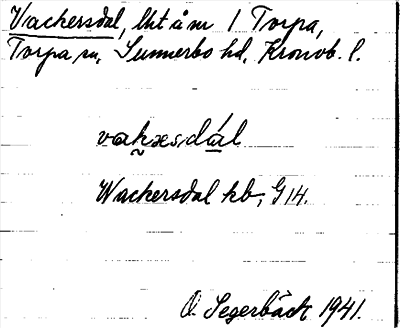 Vackersdal, lht å nr 1 Torpa,
Torpa sn, Sunnerbo hd, Kronob. l.
vak̰ɜsdál
Wackersdal kb, G 14.
O. Segerbäck 1941.